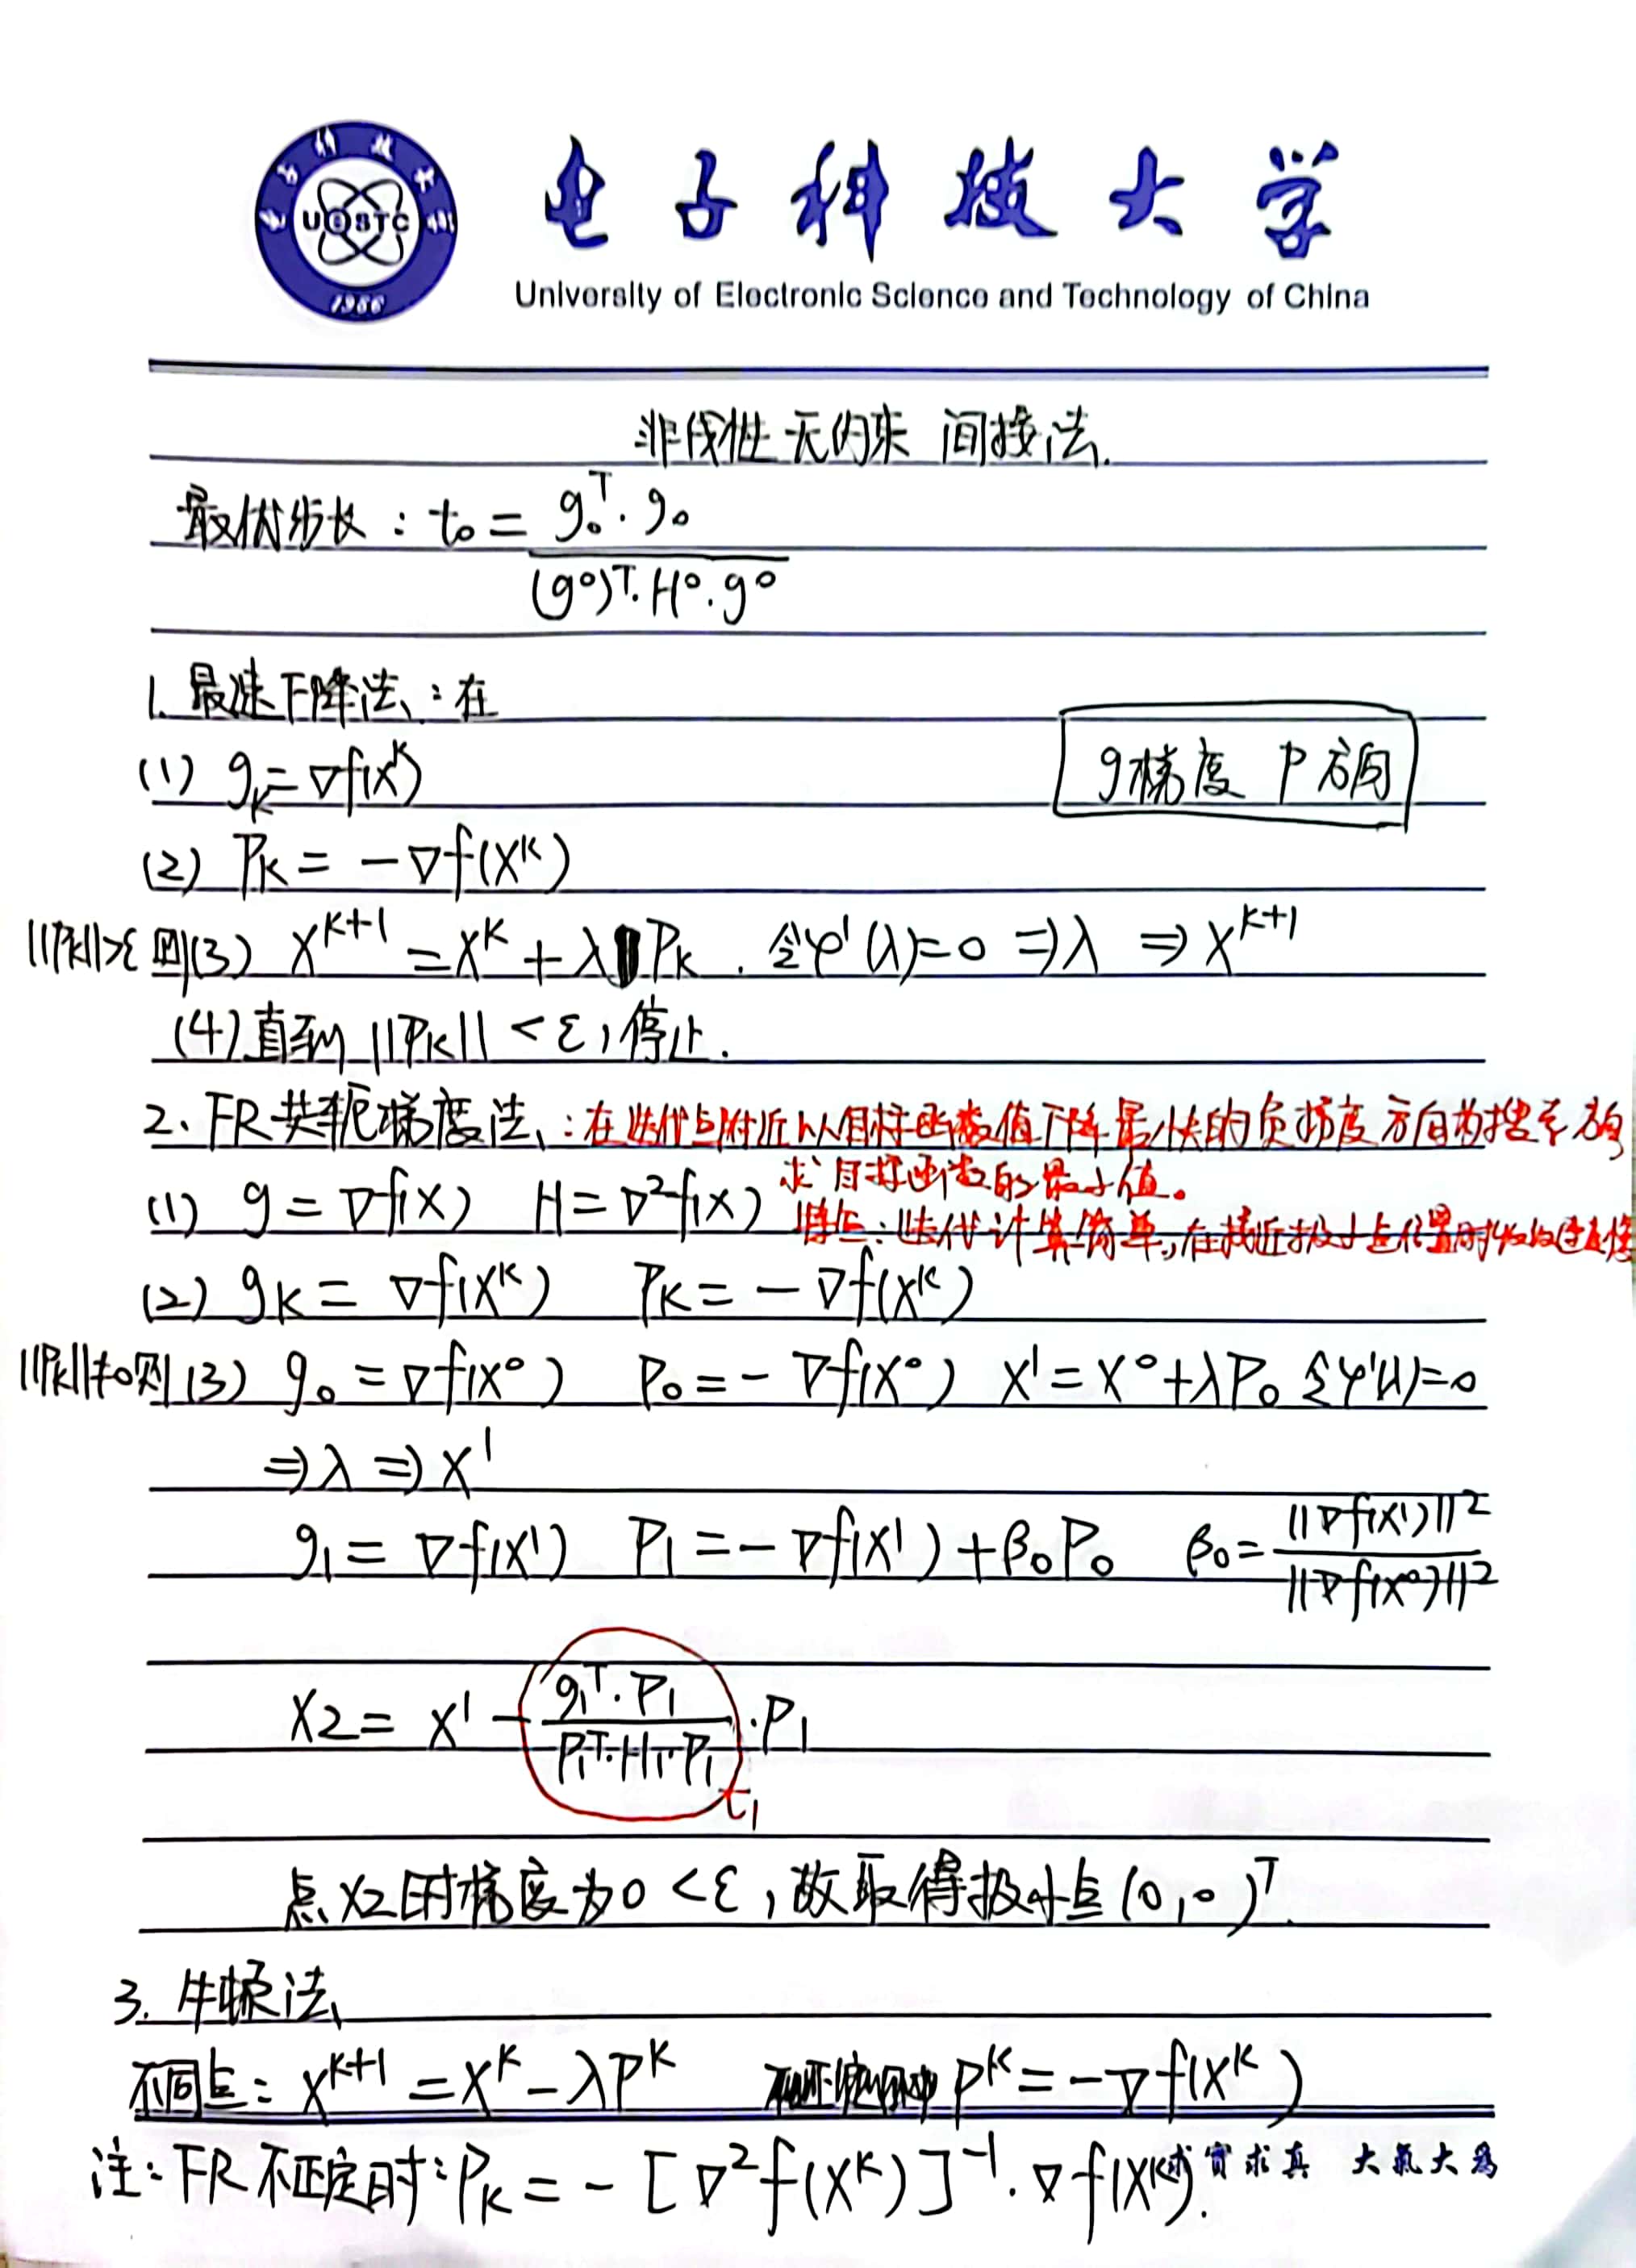 电子科技大学
UESTC
1956
University of Electronic Science and Technology of China
非线性无约束 间接法.
最优步长：t₀ = g₀ᵀ·g₀ / (g⁰)ᵀ·H⁰·g⁰
1. 最速下降法：在
(1) gₖ = ∇f(xᵏ)
g梯度 P方向
(2) Pₖ = -∇f(xᵏ)
||Pₖ||>ε 则(3) xᵏ⁺¹ = xᵏ + λPₖ. 令φ'(λ)=0 ⇒λ ⇒ xᵏ⁺¹
(4) 直到 ||Pₖ|| < ε, 停止.
2、FR共轭梯度法：在迭代点附近以目标函数值下降最快的负梯度方向为搜索方向
求目标函数的最小值。
(1) g = ∇f(x) H = ∇²f(x)
特点：迭代计算简单，在接近极小点位置时收敛速度慢
(2) gₖ = ∇f(xᵏ) Pₖ = -∇f(xᵏ)
||Pₖ||≠0则(3) g₀ = ∇f(x⁰) P₀ = -∇f(x⁰) x¹ = x⁰+λP₀ 令φ'(λ)=0
⇒λ ⇒ x¹
g₁ = ∇f(x¹) P₁ = -∇f(x¹) + β₀P₀ β₀ = ||∇f(x¹)||² / ||∇f(x⁰)||²
x₂ = x¹ - g₁ᵀ·P₁ / P₁ᵀ·H₁·P₁ ·P₁
t₁
点x₂的梯度为0 < ε, 故取得极小点(0,0)ᵀ.
3. 牛顿法
不同点：xᵏ⁺¹ = xᵏ - λPᵏ Pᵏ = -∇f(xᵏ)
注：FR不正定时：Pₖ = -[∇²f(xᵏ)]⁻¹·∇f(xᵏ).
求实求真 大气大为